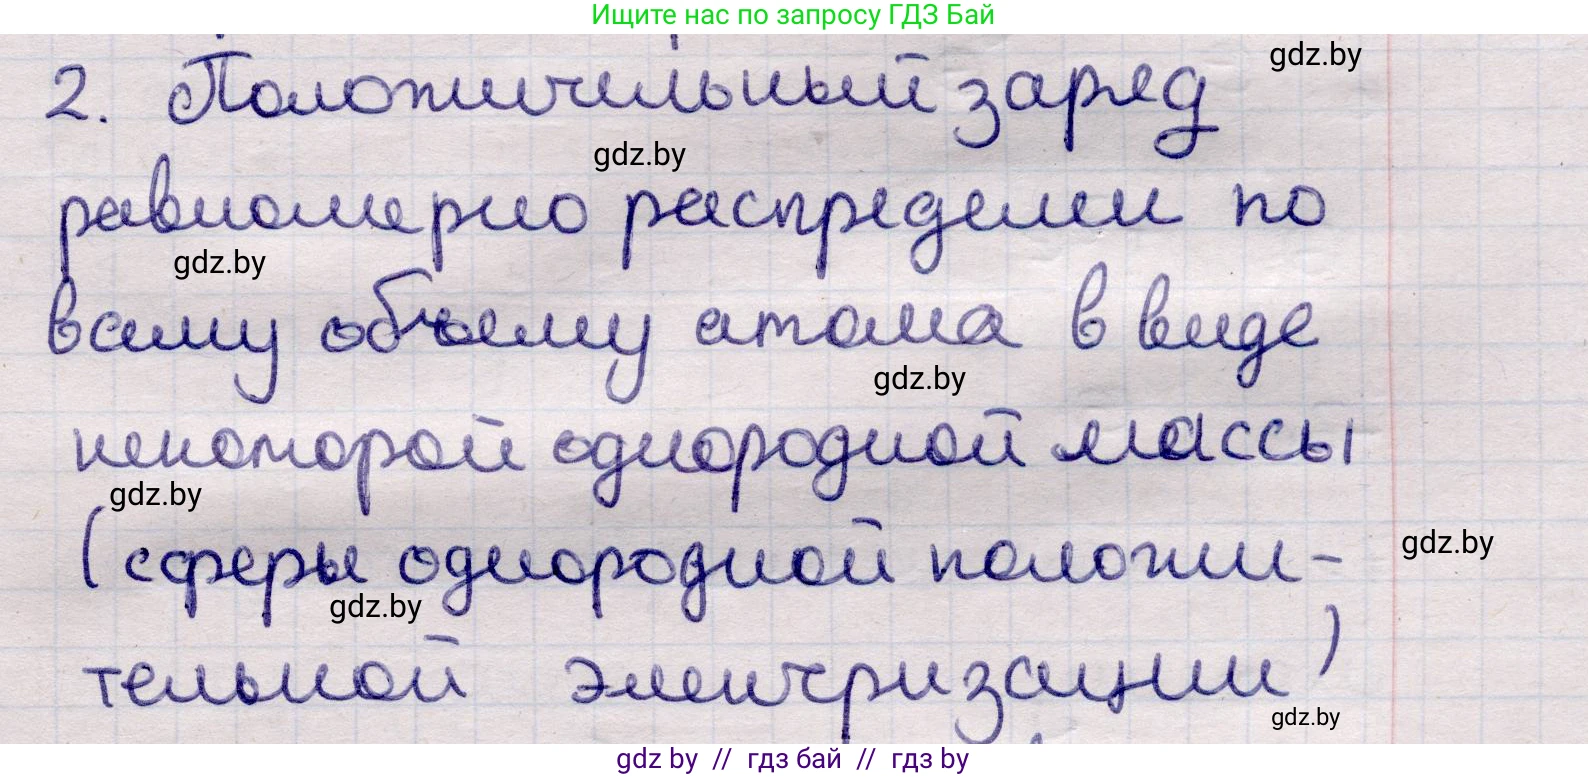 Ищите нас по запросу ГДЗ Бай
gdz.by
2. Положительный заряд
gdz.by
равномерно распределен по
gdz.by
всему объему атома в виде
gdz.by
некоторой однородной массы
gdz.by
(сферы однородной положи-
gdz.by
gdz.by
тельной электризации)
gdz.by
gdz by // гдз бай // гдз by